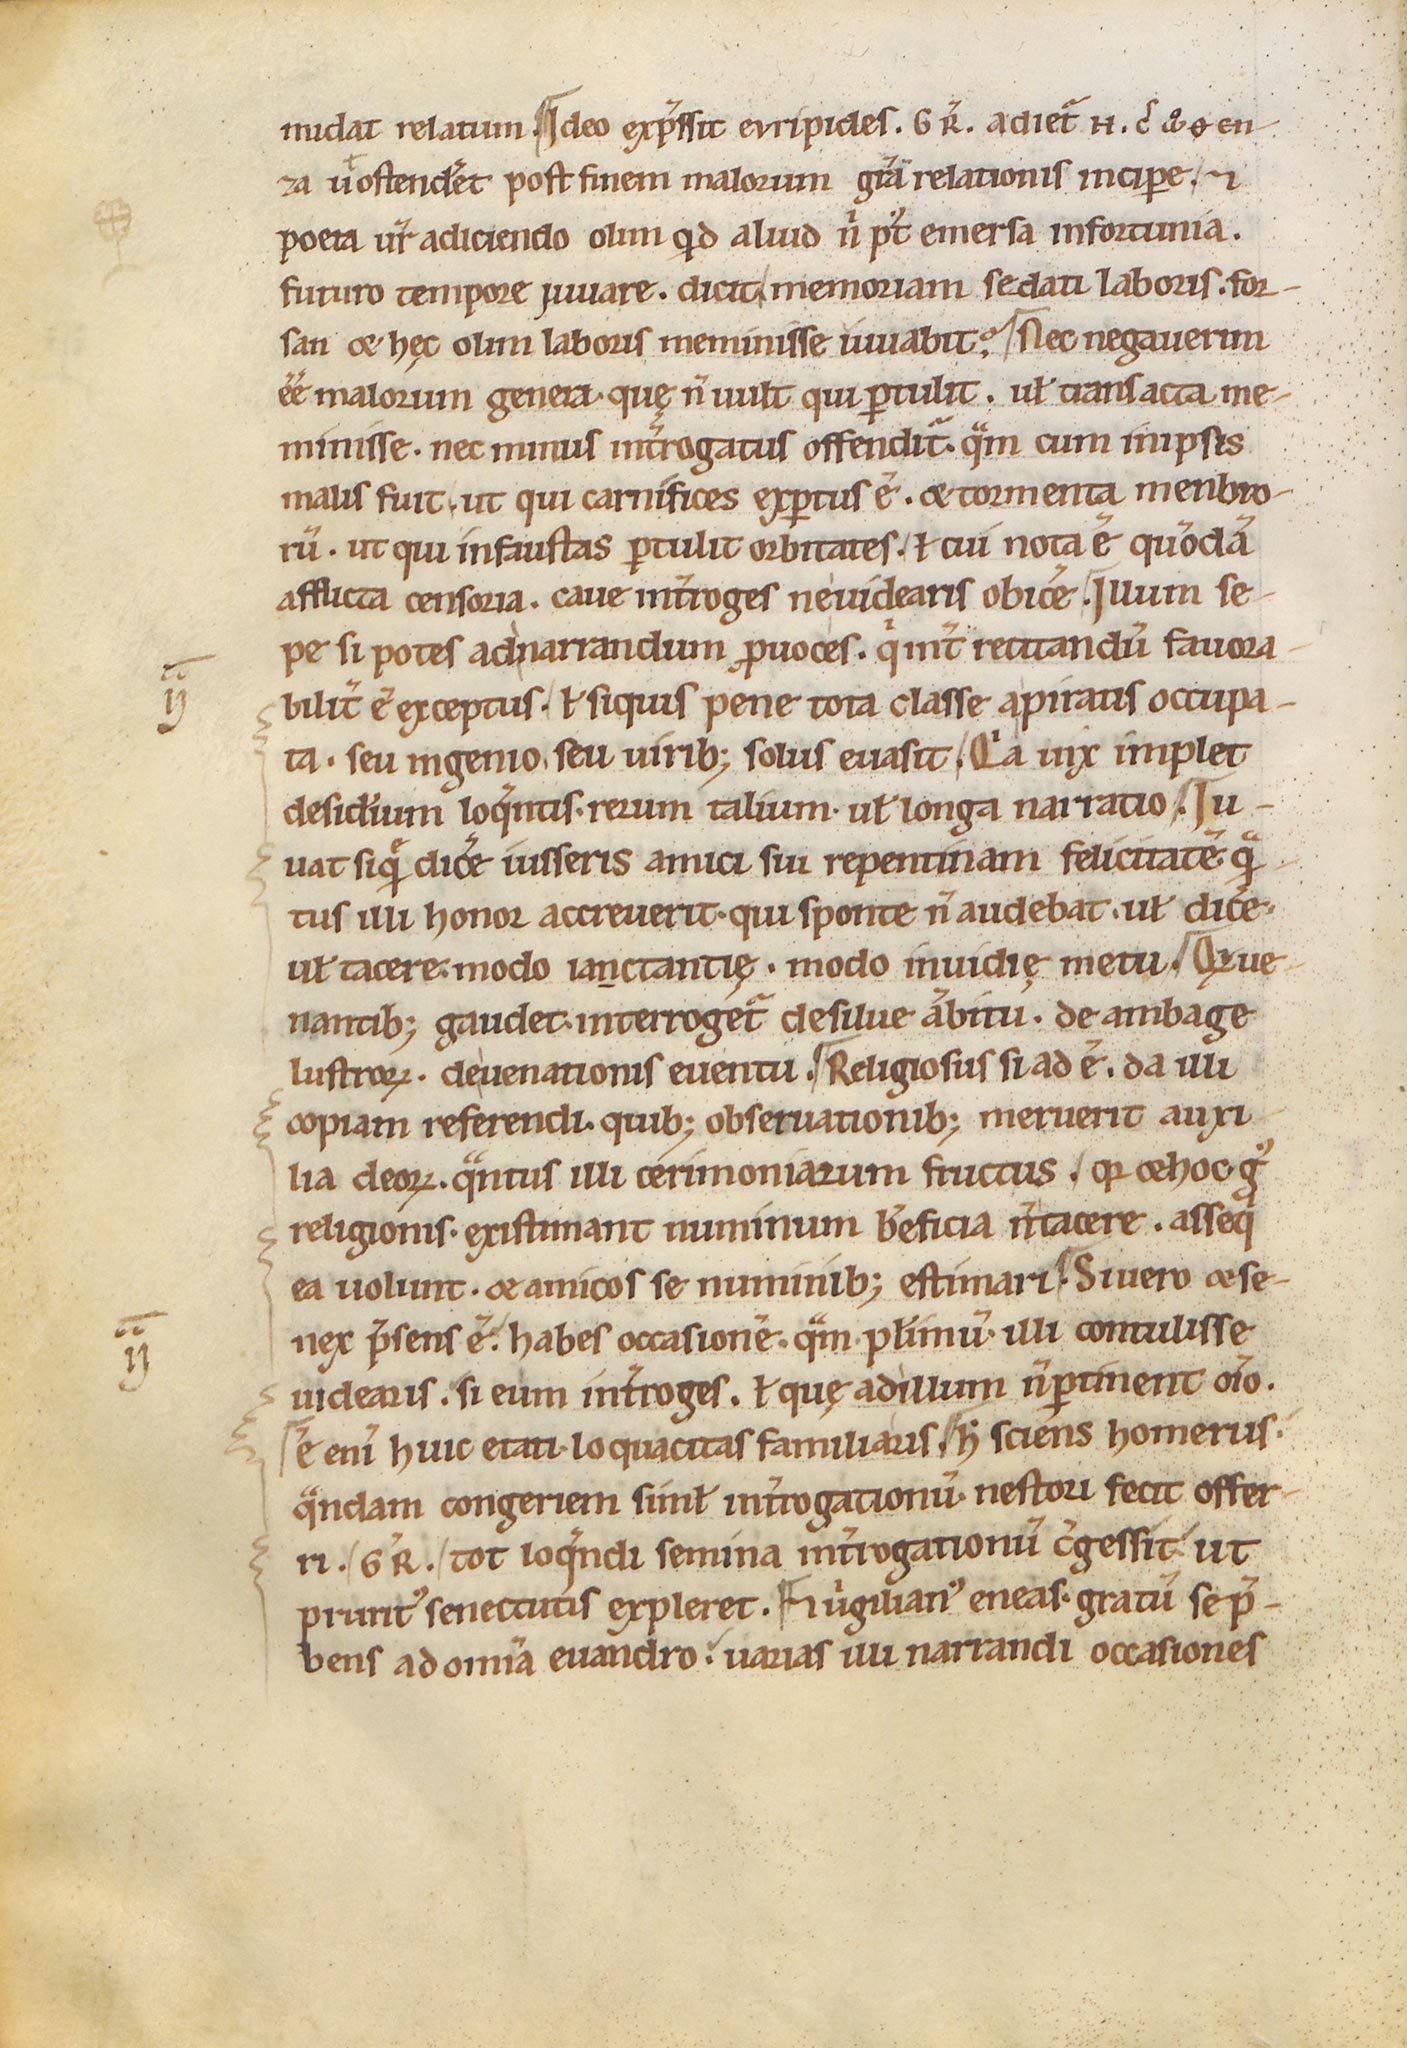 nudat relatum. Ideo exp̃ssit evripides. G R̃. adiet̃ н. c̃
za ul̵ ostendẽt post finem malorum gr̃a relationis incipe. n
poeta ur̃ adiciendo olim qd aliud ñ p᷒t emersa infortunia.
futuro tempore juvare. dicit memoriam sedati laboris. for-
san & hęc olim laboris meminisse iuuabit. Nec negauerim
ẽẽ malorum genera. quę ñ uult qui ptulit. ul̵ transacta me-
minisse. nec minus int̃rogatus offendit̃. qͣm cum inipsis
malis fuit. ut qui carnifices exptus ẽ. & tormenta menbro-
rũ. ut qui infaustas ptulit orbitates. l̵ cui nota ẽ quõdã
afflicta censoria. caue int̃roges neuidearis obicẽ. Illum se-
pe si potes adnarrandum ꝓuoces. qͥ int̃ recitandũ fauora-
bilit̃ ẽ exceptus. l̵ siquis pene tota classe apiratis occupa-
ta. seu ingenio seu uirib; solus euasit. Ca uix implet
desidĩum loq̃ntis. rerum talium. ul̵ longa narratio. Iu-
uat siqͣ dicẽ iusseris amici sui repentinam felicitatẽ. qͣ
tus illi honor accreuerit. qui sponte ñ audebat. ul̵ dicẽ.
ul̵ tacere. modo ianctantię. modo inuidię metu. Qꝛ ue-
nantib; gaudet. interroget̃ desilue ãbitu. de ambage
lustroꝝ. deuenationis euentu. Religiosus si ad ẽ. da illi
copiam referendi. quib; obseruationib; meruerit auxi
lia deoꝝ. qͣntus illi cerimoniarum fructus. qꝛ & hoc g᷒
religionis. existimant numinum b̃eficia ñ tacere. asseqͥ
ea uolunt. & amicos se numinib; estimari. Si uero & se-
nex p̃sens ẽ. habes occasionẽ. qͣm pl̃imũ. illi contulisse
uidearis. si eum int̃roges. l̵ quę adillum ñ ptinent oĩo.
ẽ enĩ huic etati loquacitas familiaris. h̃ sciens homerus.
qͣndam congeriem simł int̃rogationũ nestori fecit offer-
ri. G R̃. tot loq̃ndi semina int̃rogationũ c̃gessit. ut
prurit᷒ senectutis expleret. n uͥgilian᷒ eneas. gratũ se p̃-
bens ad omĩa euandro. uarias illi narrandi occasiones